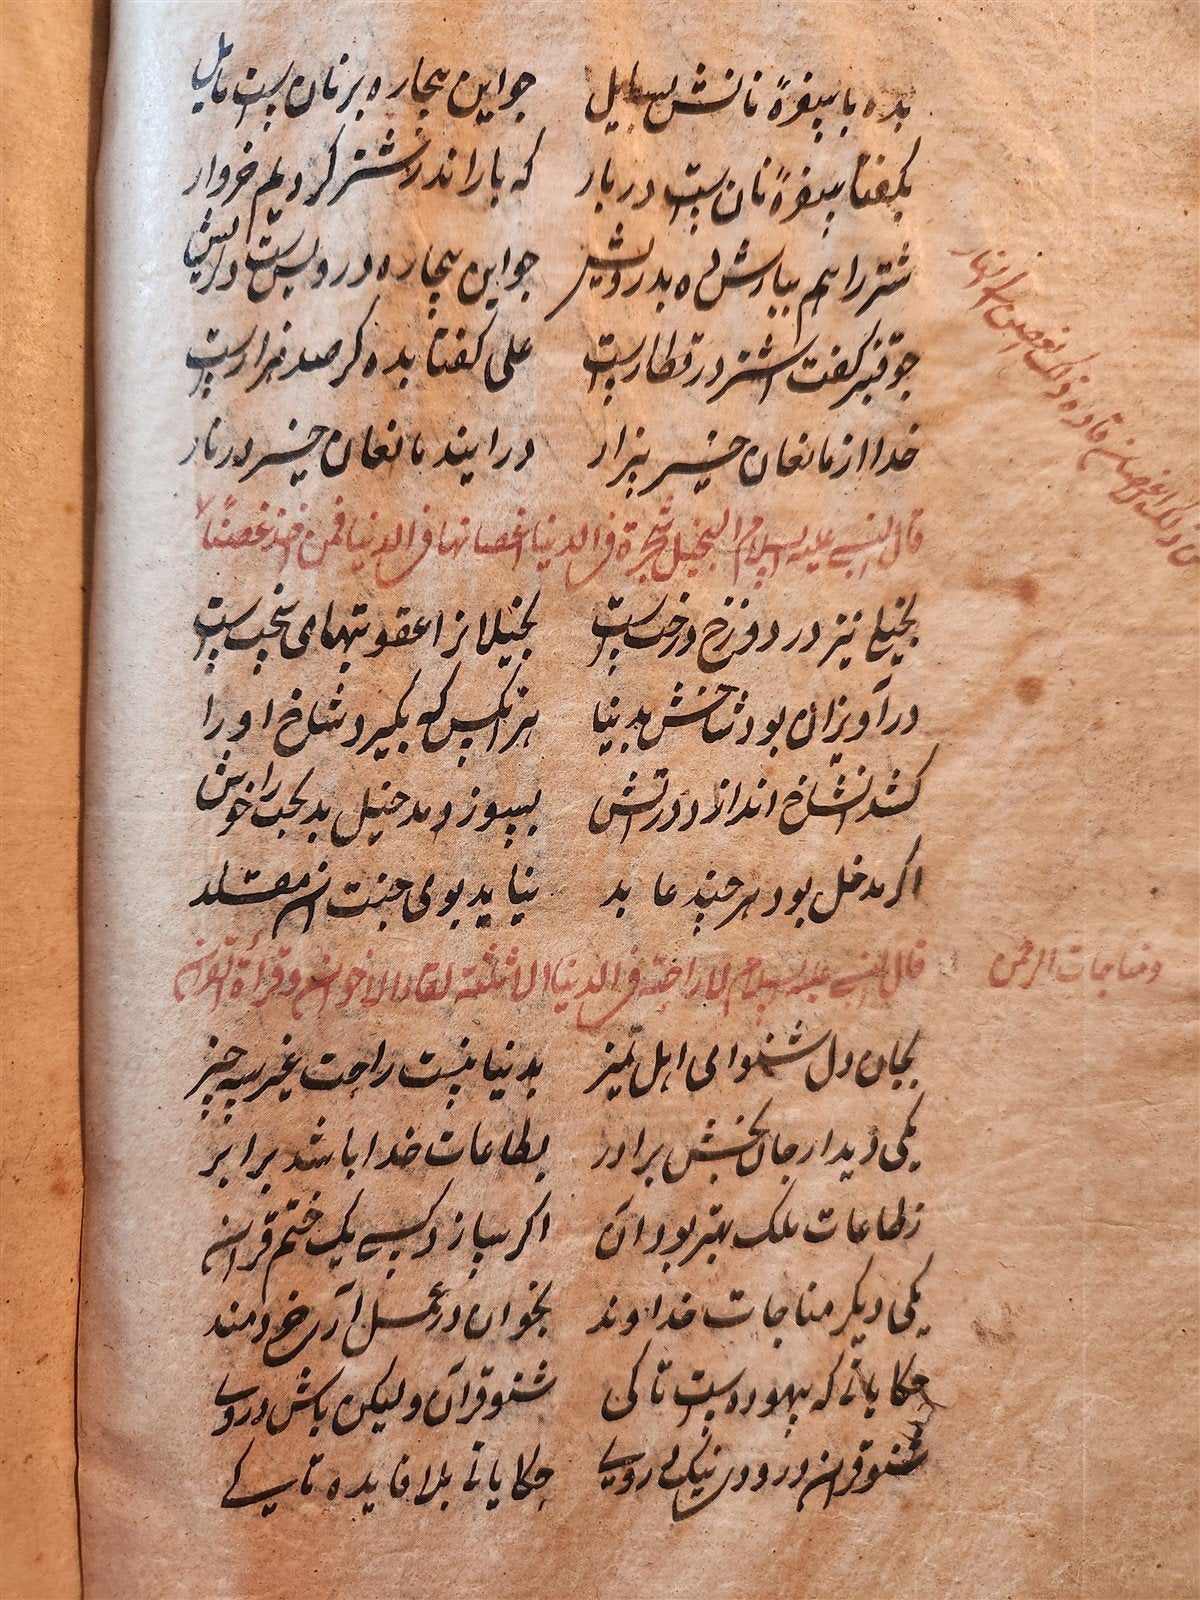 بده با سفرهٔ نانش بسایل چو این بیچاره بر نان هست مایل
بگفتا سفرهٔ نان هست در بار که بار اندر شتر کردیم خروار
شتر را هم ببارش ده بدرویش چو این بیچاره درویش است
چو قنبر گفت اشتر در قطارست علی گفتا بده گر صد هزارست
خدا از مانعان خیر بیزار درایند مانعان خیر در نار
قال النبی علیه السلام البخیل شجرة فی الدنیا اغصانها فی الدنیا فمن اخذ غصنا
بخیلی نیز در دوزخ درخت است بخیلانرا عقوبتهای سخت است
درآویزان بود شاخش بدنیا هر آنکس که بگیرد شاخ او را
کشد آنشاخ اندازد در آتش بسوزد مدخل بدبخت را خوش
اگر مدخل بود هر چند عابد نیاید بوی جنت آن مقلد
قال النبی علیه السلام لا راحة فی الدنیا الا ثلثة لقاء الاخوان و قرأة القرآن
و مناجات الرحمن
بجان دل شنو ای اهل تمیز بدنیا نیست راحت غیر سه چیز
یکی دیدار جان بخش برادر بطاعات خدا باشد برابر
زطاعات ملک بهتر بود آن اگر سازد کسی یک ختم قرآن
یکی دیگر مناجات خداوند بخوان در عمل آر خردمند
حکایاتی که بیهوده است تا کی شنو قرآن و لیکن باش در وی
شنو قرآن در نیک روی حکایاتی بلا فایده تا کی